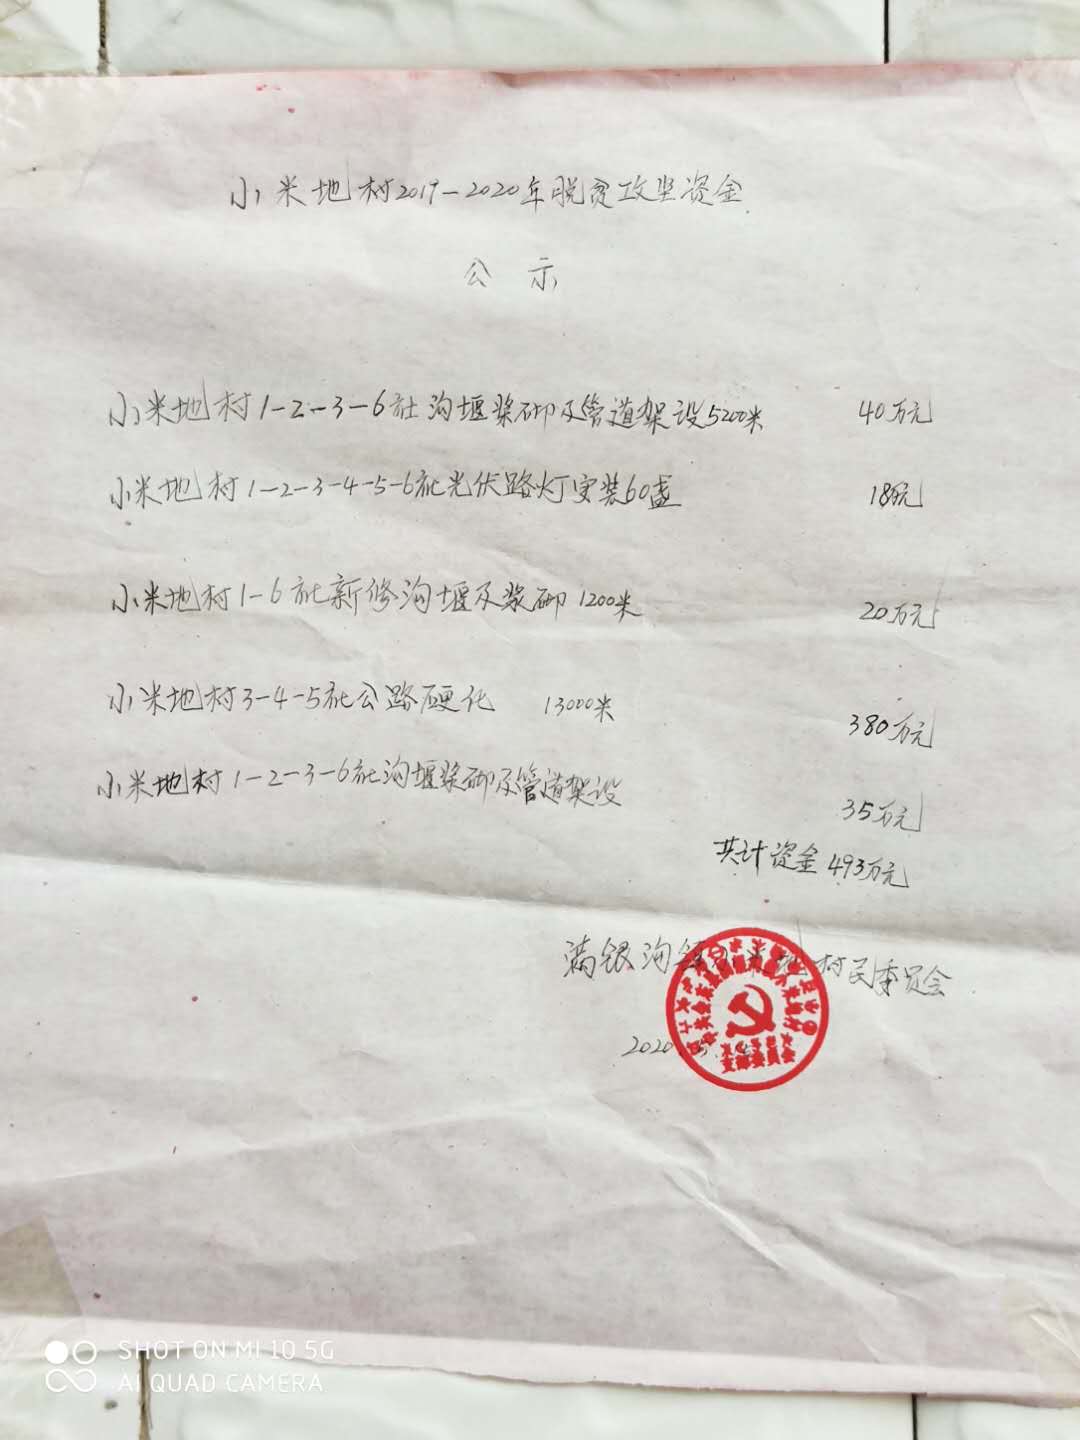 小米地村2019-2020年脱贫攻坚资金
公示
小米地村1-2-3-6社沟堰浆砌及管道架设5200米 40万元
小米地村1-2-3-4-5-6社光伏路灯安装60盏 18万元
小米地村1-6社新修沟堰及浆砌1200米 20万元
小米地村3-4-5社公路硬化 13000米 380万元
小米地村1-2-3-6社沟堰浆砌及管道架设 35万元
共计资金493万元
满银沟镇小米地村民委员会
2020.5.
支部委员会
SHOT ON MI 10 5G
AI QUAD CAMERA